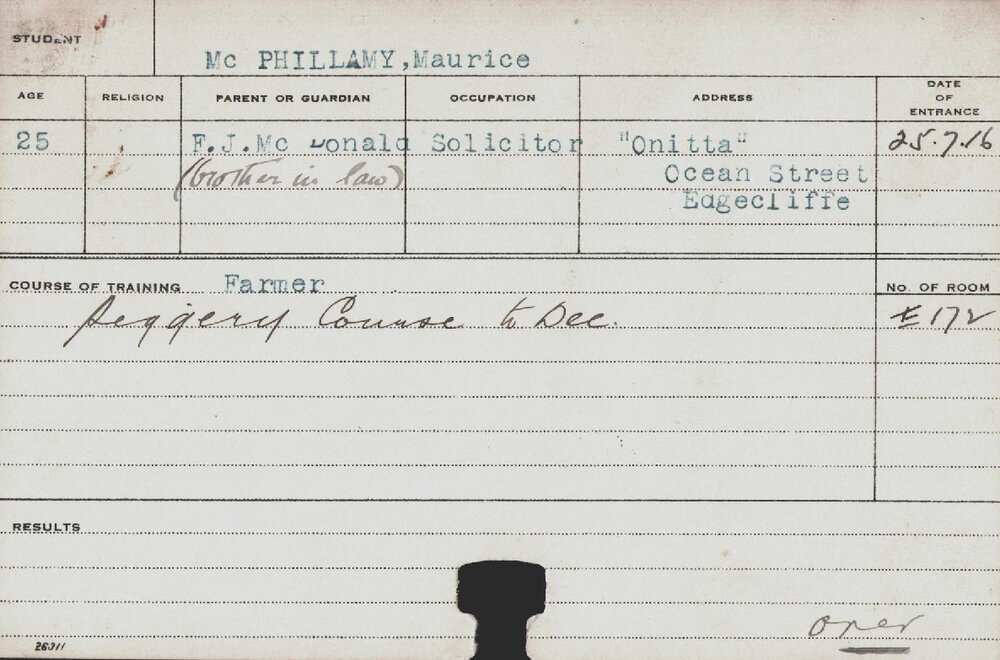 STUDENT
Mc PHILLAMY,Maurice
AGE RELIGION PARENT OR GUARDIAN OCCUPATION ADDRESS DATE OF ENTRANCE
25 F.J.Mc Donald Solicitor "Onitta" 25.7.16
(brother in law) Ocean Street
Edgecliffe
COURSE OF TRAINING Farmer No. OF ROOM
Piggery Course to Dec. 172
RESULTS
26311